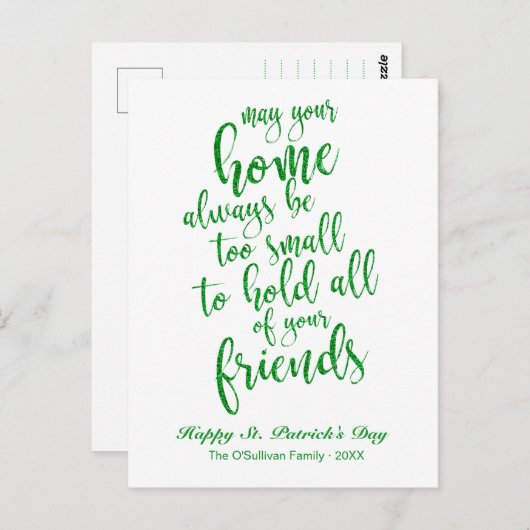 may your
home
always be
too small
to hold all
of your
friends
Happy St. Patrick's Day
The O'Sullivan Family · 20XX